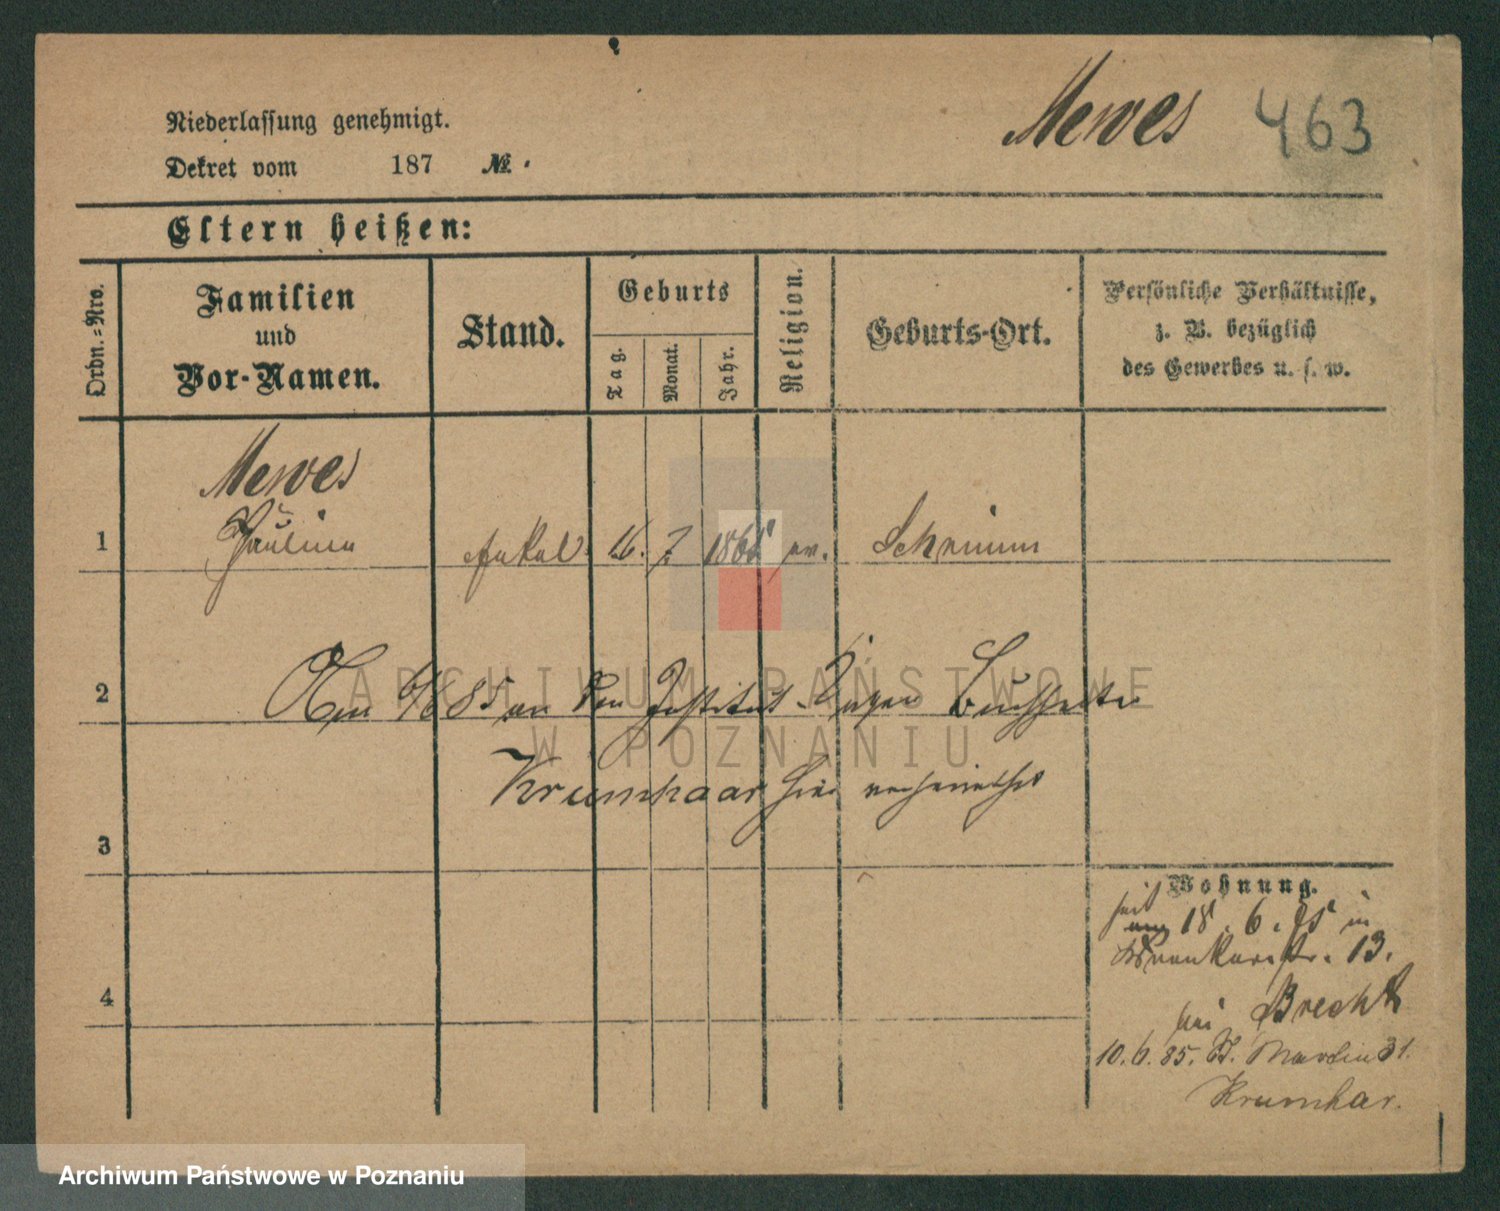 Mewes 463
Niederlassung genehmigt.
Dekret vom 187 №.
Eltern heißen:
Ordn.=Nro.
Familien
und
Vor-Namen.
Stand.
Geburts
Tag.
Monat.
Jahr.
Religion.
Geburts-Ort.
Persönliche Verhältnisse,
z. B. bezüglich
des Gewerbes u. s. w.
Mewes
1 Pauline 16. 7. ev. Schrimm
2 Am 6/6 85 an den Institut
3 Krumhaar hier verheirathet
Wohnung.
seit
18. 6. in
13.
4 bei Brecht
10. 6. 85. St. Martin 31.
Krumhar.
ARCHIWUM PAŃSTWOWE
W POZNANIU
Archiwum Państwowe w Poznaniu